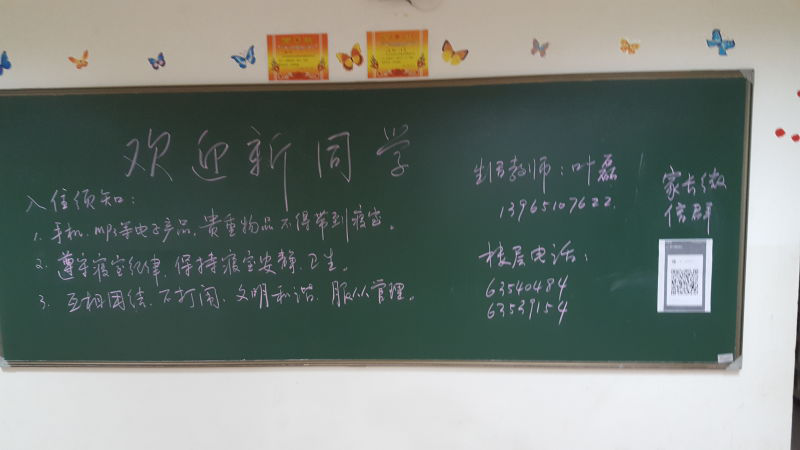 欢迎新同学
入住须知：
1. 手机、MP3等电子产品、贵重物品不得带到寝室。
2. 遵守寝室纪律，保持寝室安静、卫生。
3. 互相团结、不打闹、文明和谐、服从管理。
生活教师：叶磊
13965107622
楼层电话：
63540484
63539154
家长微
信群